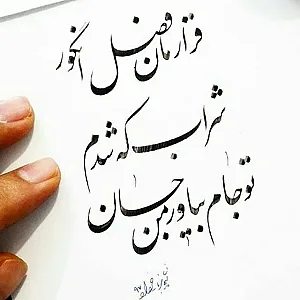 قرارمان فصل انگور
شراب که شدم
تو جام بیاور من جان